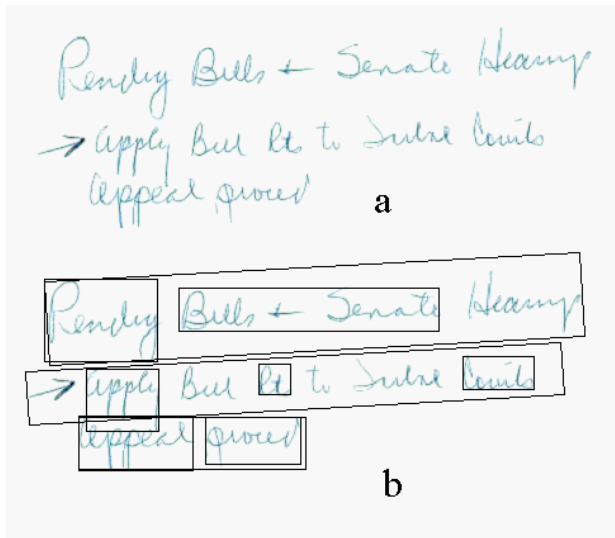 Pending Bills + Senate Hearings
→ Apply Bill Rts to Tribal Courts
Appeal proced
a
Pending Bills + Senate Hearings
→ Apply Bill Rts to Tribal Courts
Appeal proced
b